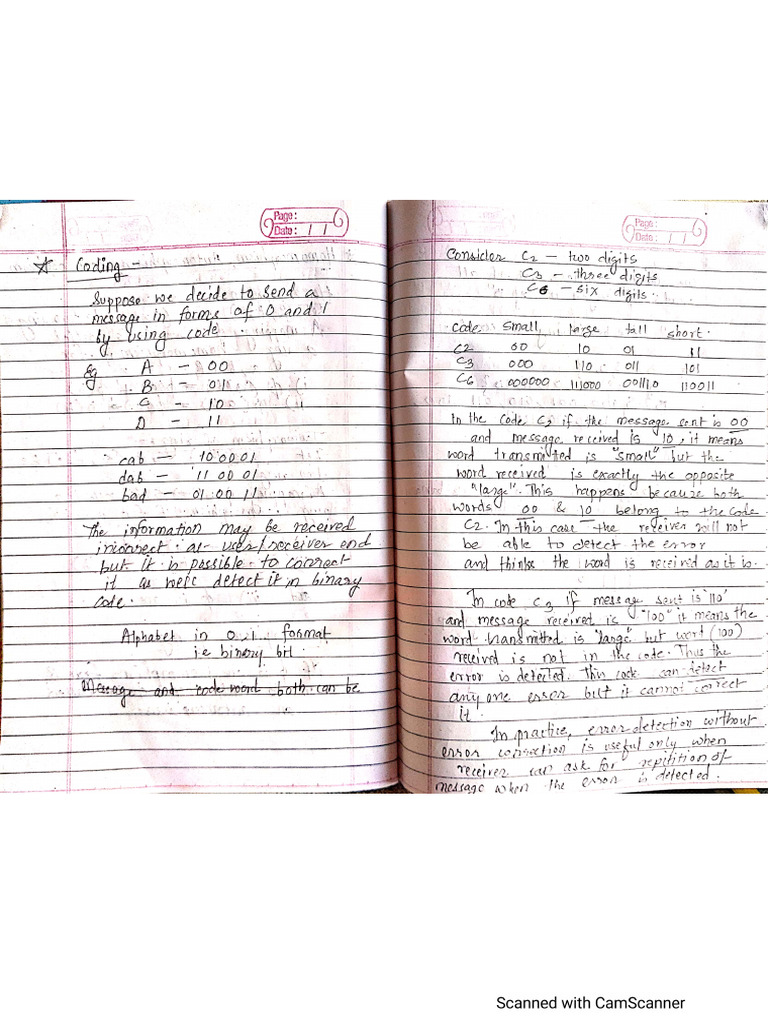 Page:
Date: / /
* Coding -
Suppose we decide to send a
message in forms of 0 and 1
by using code.
Eg A - 00
B - 01
C - 10
D - 11
cab - 10 00 01
dab - 11 00 01
bad - 01 00 11
The information may be received
incorrect at user/receiver end
but it is possible to correct
it as well detect it in binary
code.
Alphabet in 0,1 format
i.e binary bit
Message and codeword both can be
Page:
Date: / /
Consider C2 - two digits
C3 - three digits
C6 - six digits.
code small large tall short.
C2 00 10 01 11
C3 000 110 011 101
C6 000000 111000 001110 110011
In the code C2 if the message sent is 00
and message received is 10, it means
word transmitted is "small" but the
word received is exactly the opposite
"large". This happens because both
words 00 & 10 belong to the code
C2. In this case the receiver will not
be able to detect the error
and thinks the word is received as it is.
In code C3 if message sent is '110'
and message received is "100" it means the
word transmitted is "large" but word (100)
received is not in the code. Thus the
error is detected. This code can detect
any one error but it cannot correct
it.
In practice, error detection without
error correction is useful only when
receiver can ask for repitition of
message when the error is detected.
Scanned with CamScanner